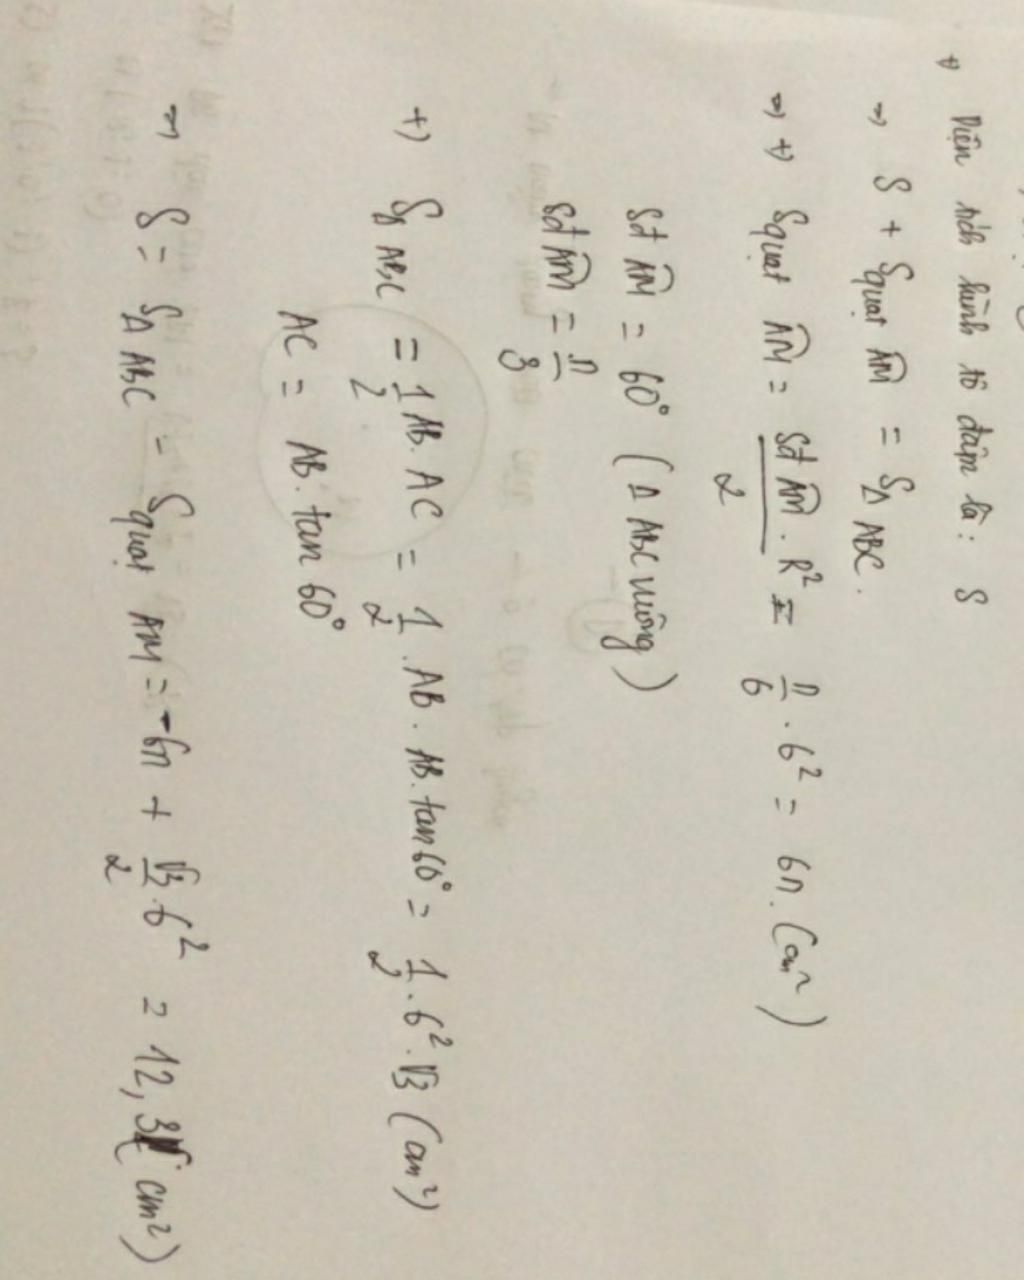 +) Diện tích hình tô đậm là: S
→ S + Squạt AM = SΔ ABC.
→ +) Squạt AM = sđ AM . R² / 2 = π/6 . 6² = 6π (cm²)
sđ AM = 60° (Δ ABC vuông)
sđ AM = π/3
+) SΔ ABC = 1/2 AB. AC = 1/2 . AB . AB. tan 60° = 1/2 . 6² . √3 (cm²)
AC = AB. tan 60°
→ S = SΔ ABC - Squạt AM = -6π + √3/2 6² = 12,3 (cm²)